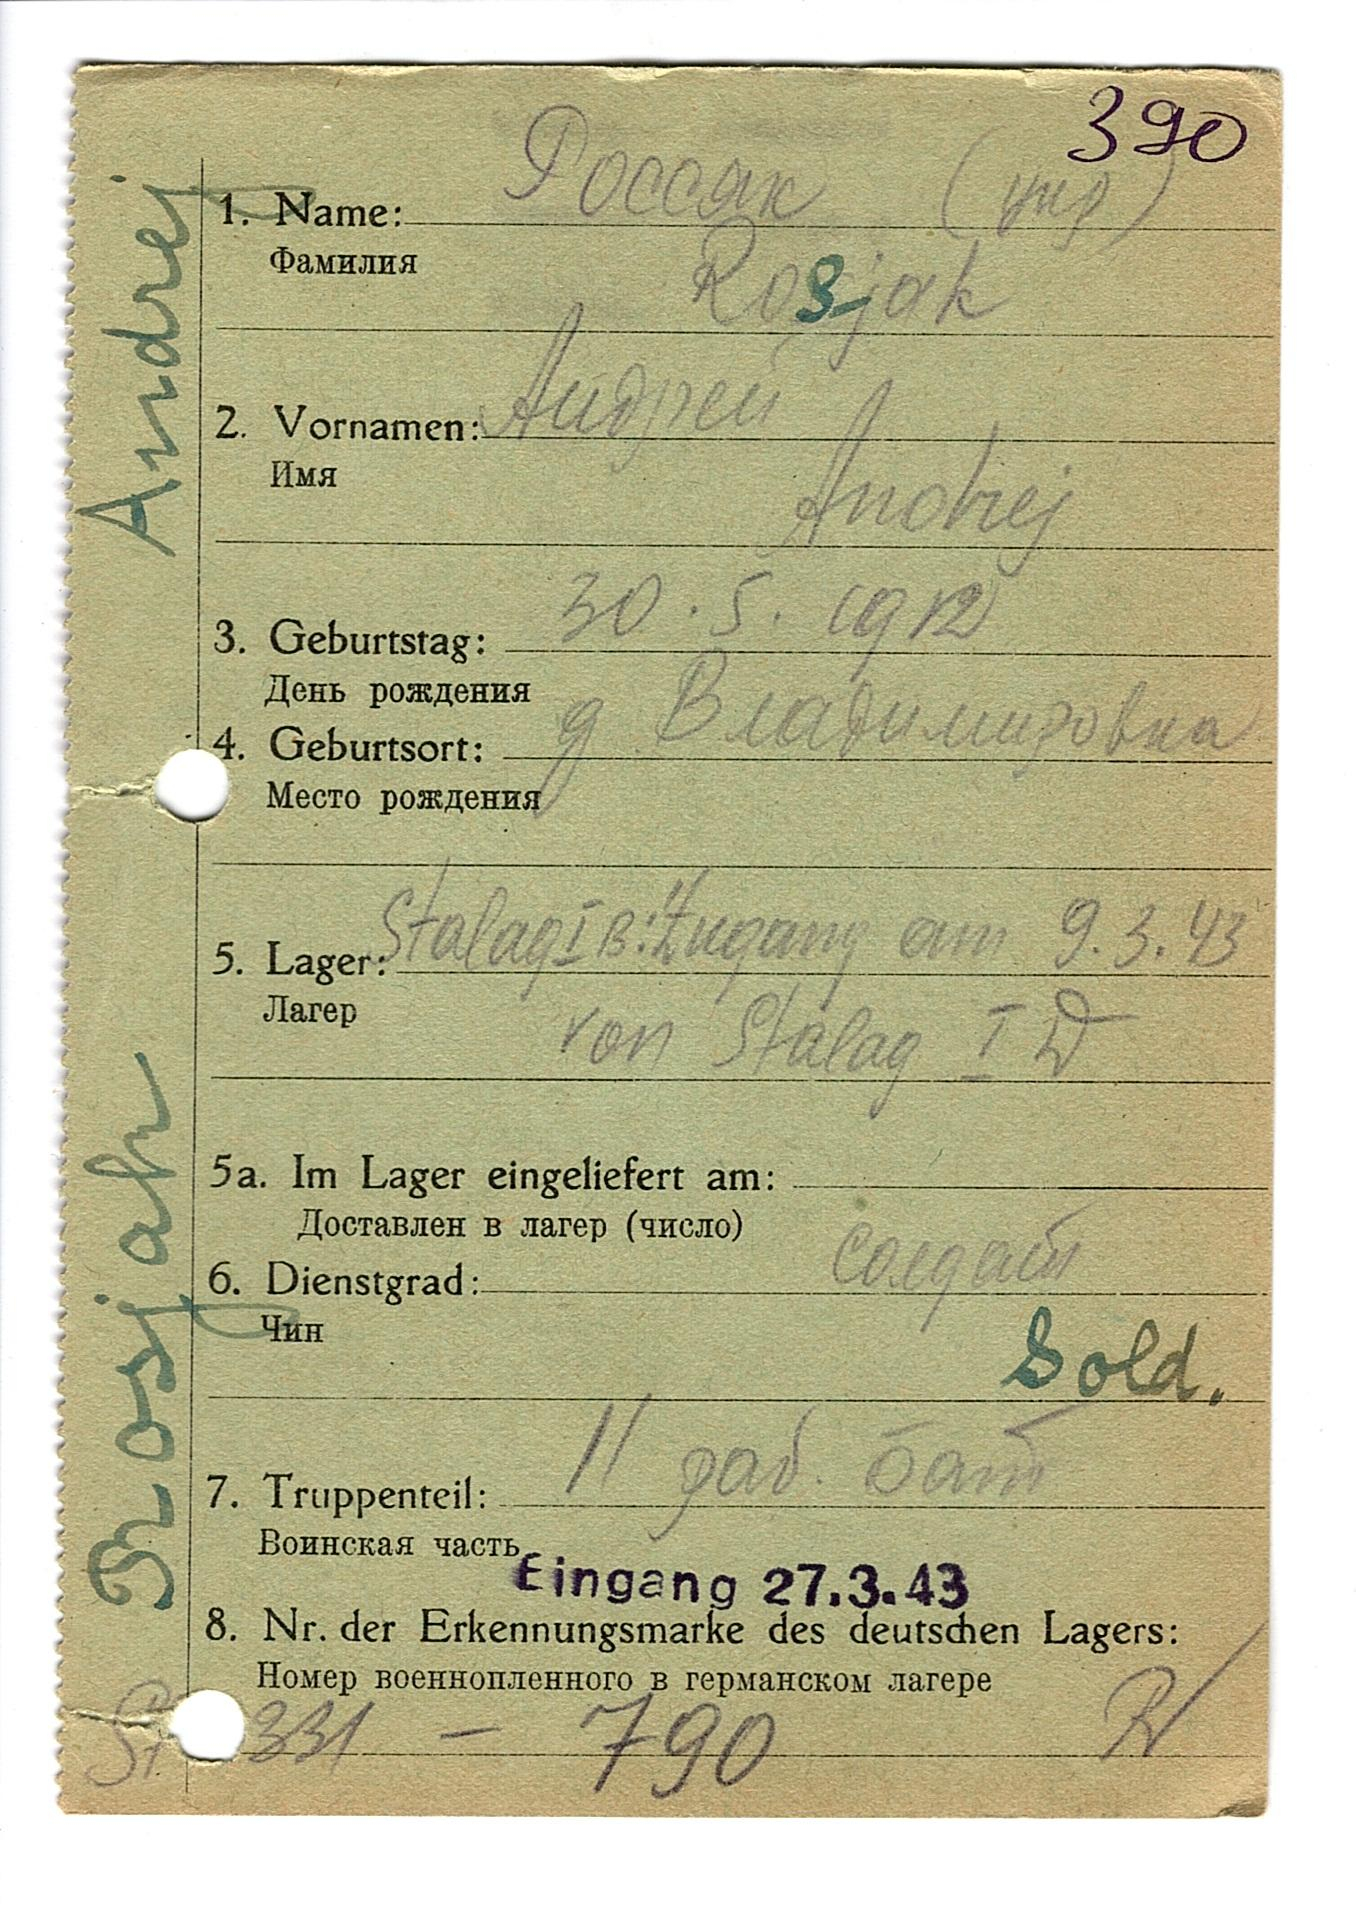 390
Россяк (укр)
1. Name:
Фамилия
Rosjak
Андрей
2. Vornamen:
Имя
Andrej
30. 5. 1912
3. Geburtstag:
День рождения
д Владимировка
4. Geburtsort:
Место рождения
Stalag I B: Zugang am 9.3.43
5. Lager:
Лагер
von Stalag I D
5a. Im Lager eingeliefert am:
Доставлен в лагер (число)
солдат
6. Dienstgrad:
Чин
Sold.
11 раб. бат
7. Truppenteil:
Воинская часть
Eingang 27.3.43
8. Nr. der Erkennungsmarke des deutschen Lagers:
Номер военнопленного в германском лагере
St 331 – 790
Rosjak Andrej